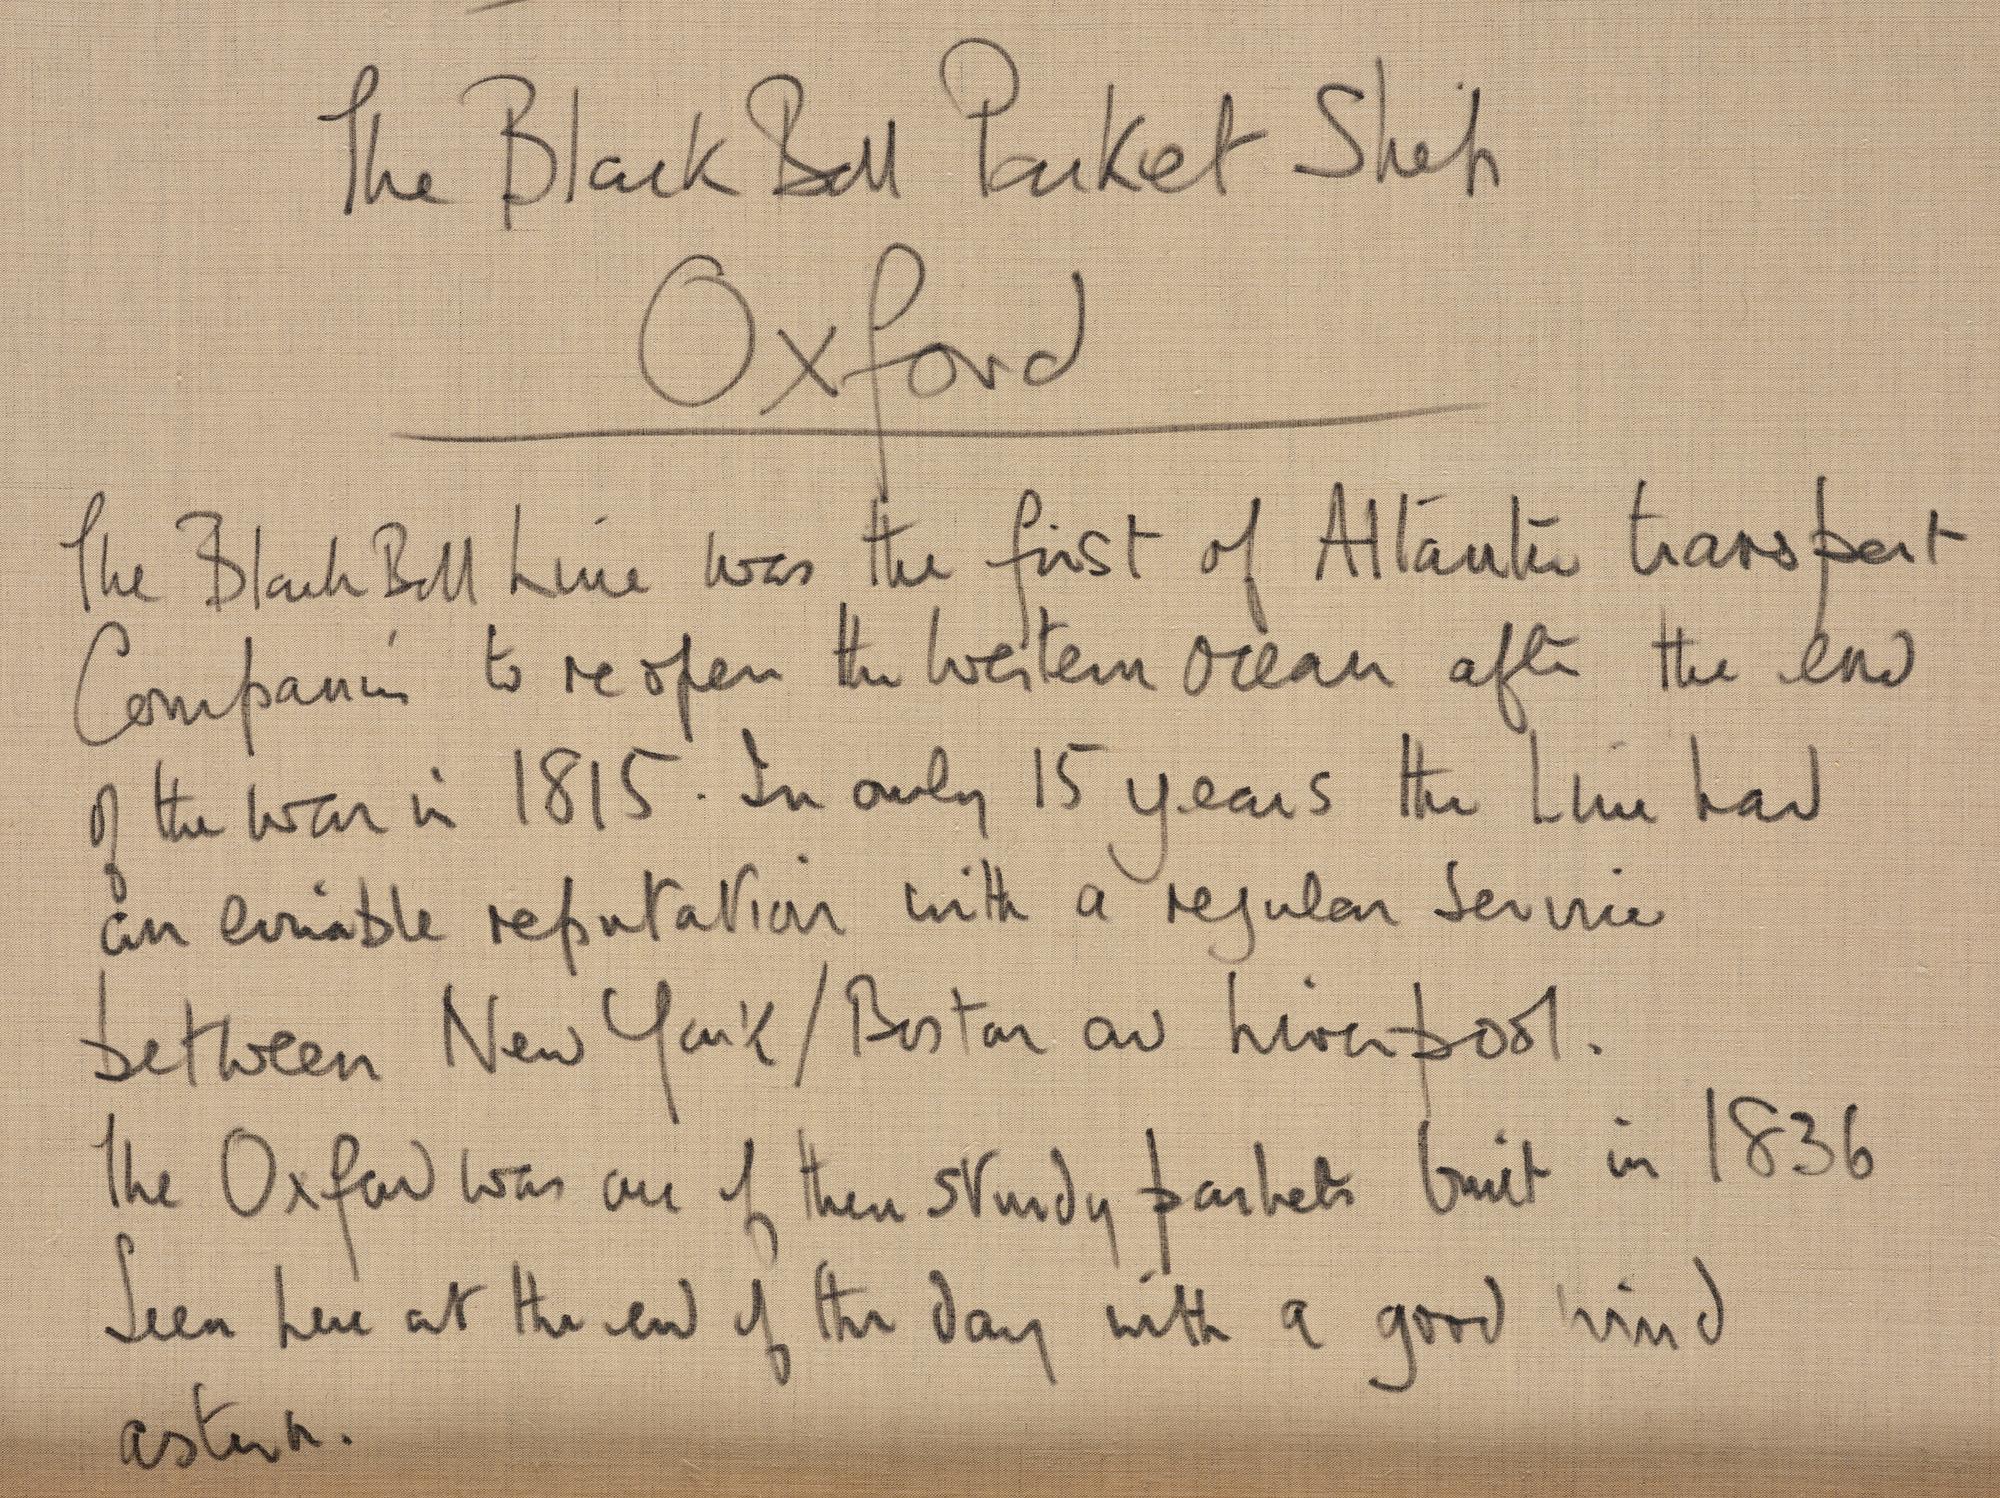 The Black Ball Packet Ship
Oxford
The Black Ball Line was the first of Atlantic transport
Companies to reopen the Western Ocean after the end
of the war in 1815. In only 15 years the Line had
an enviable reputation with a regular Service
between New York/Boston and Liverpool.
The Oxford was one of their sturdy packets built in 1836
Seen here at the end of the day with a good wind
astern.